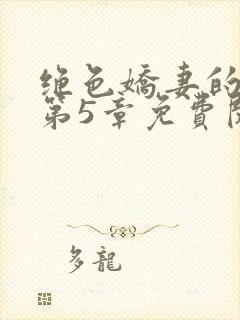 绝色娇妻的
第5章免費
多龍